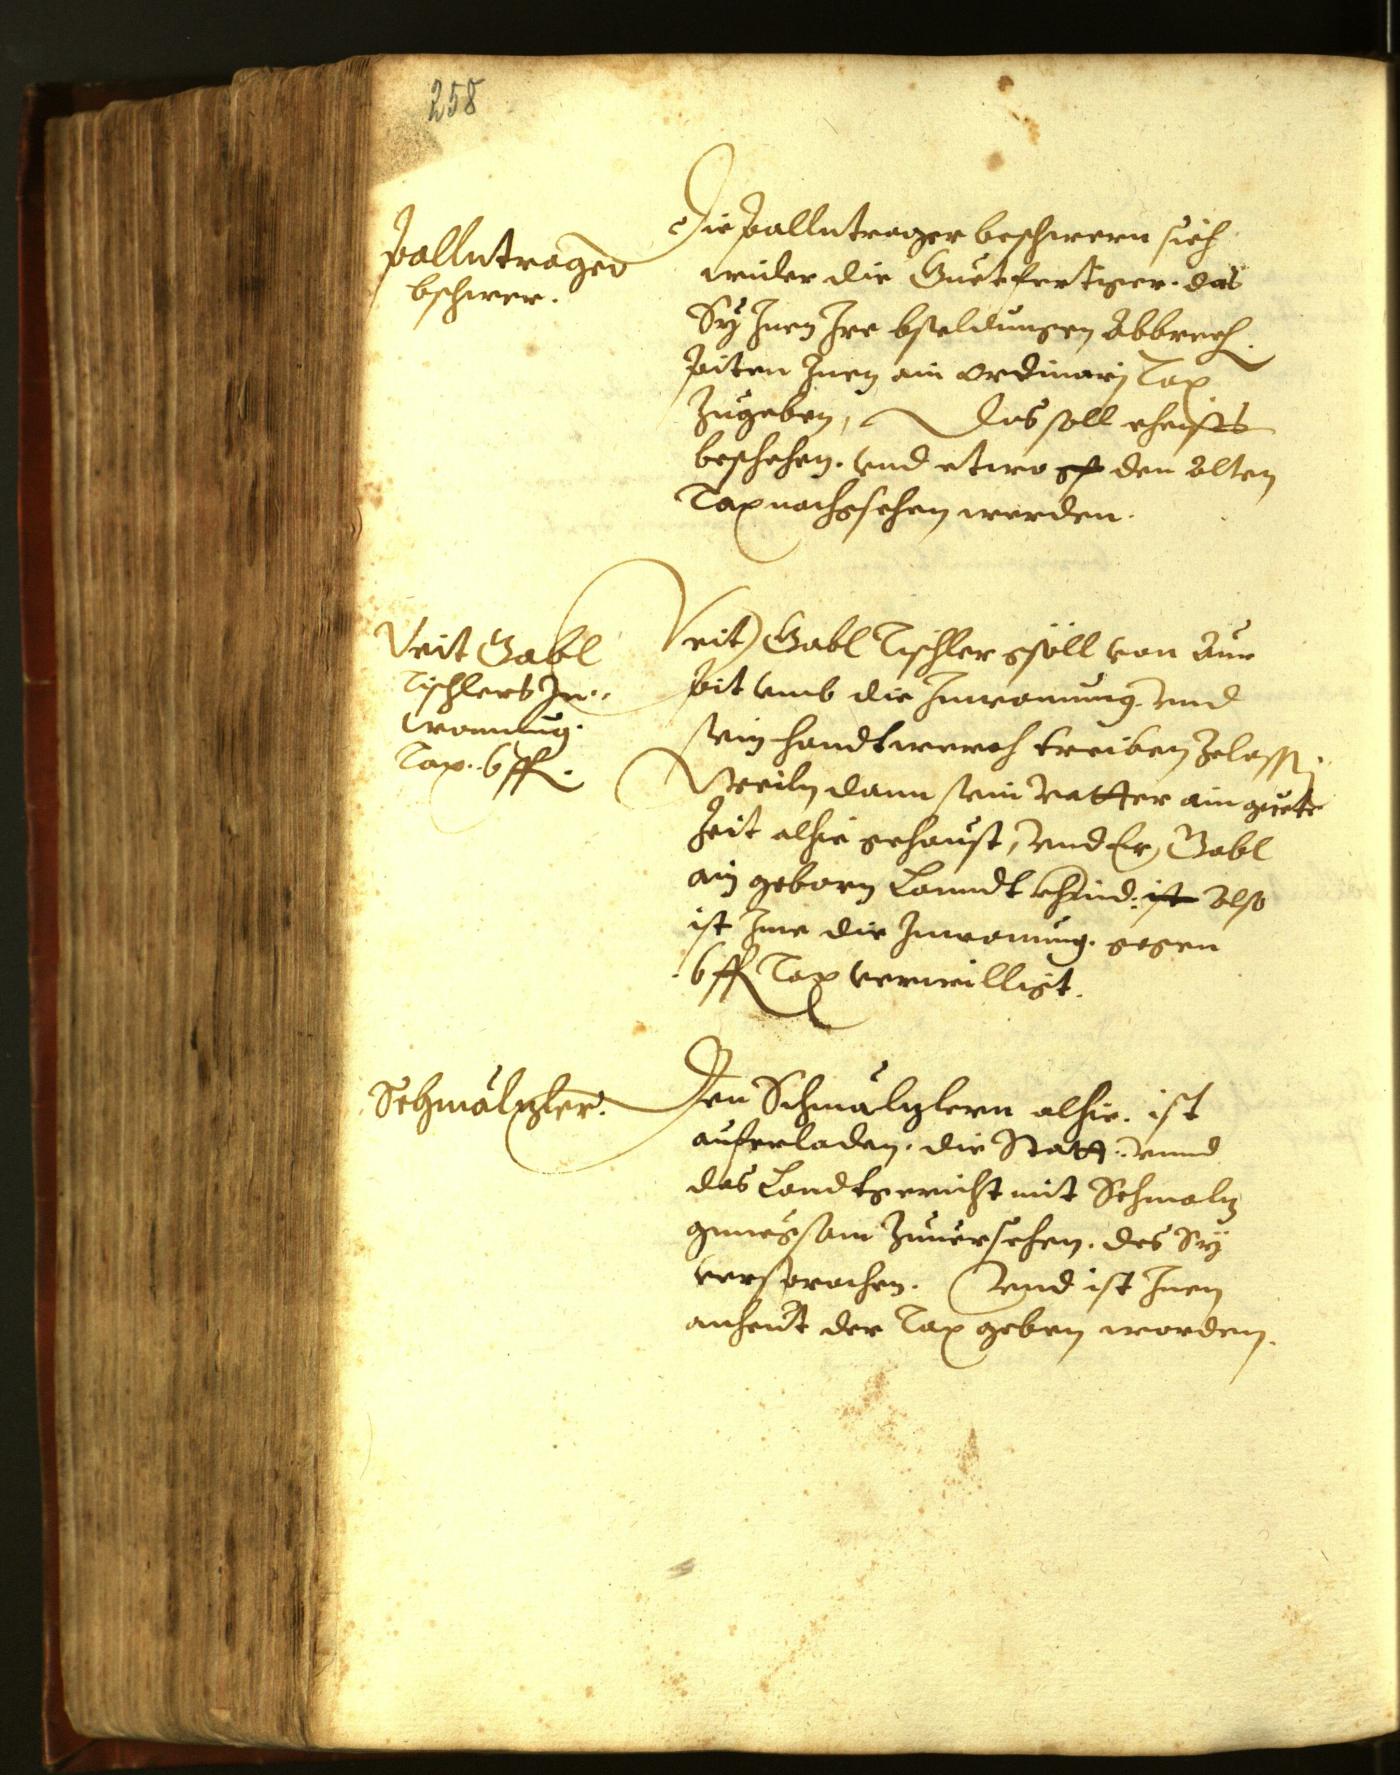 258
Pallntrager
bschwer.
Die Pallntrager beschwern sich
wider die Guetfertiger. das
Sy Inen Ire bsoldungen Abbrech.
Biten Inen ain ordinarj Tax
Zugeben, Das soll eheists
beschehen. vnd etwo den Alten
Tax nachgsehen werden.
Veit Gabl
Tischlers In-
wonung.
Tax. 6 ff.
Veit Gabl Tischler gsöll von Aur
bit vmb die Inwonung vnd
sein handtwerch treiben Zelassen.
Weiln dann sein vatter ain guete
Zeit alhie gehaust, vnd Er, Gabl
ain geborn Lanndt khind. ist Also
ist Ime die Inwonung. gegen
6 ff Tax verwilligt.
Schmälzler.
Den Schmälzlern alhie. ist
auferladen. die Statt. vnnd
das Landtgericht mit Schmalz
gnuegsam Zuuersehen. des Sy
versprochen. Vnd ist Inen
anheut der Tax geben worden.